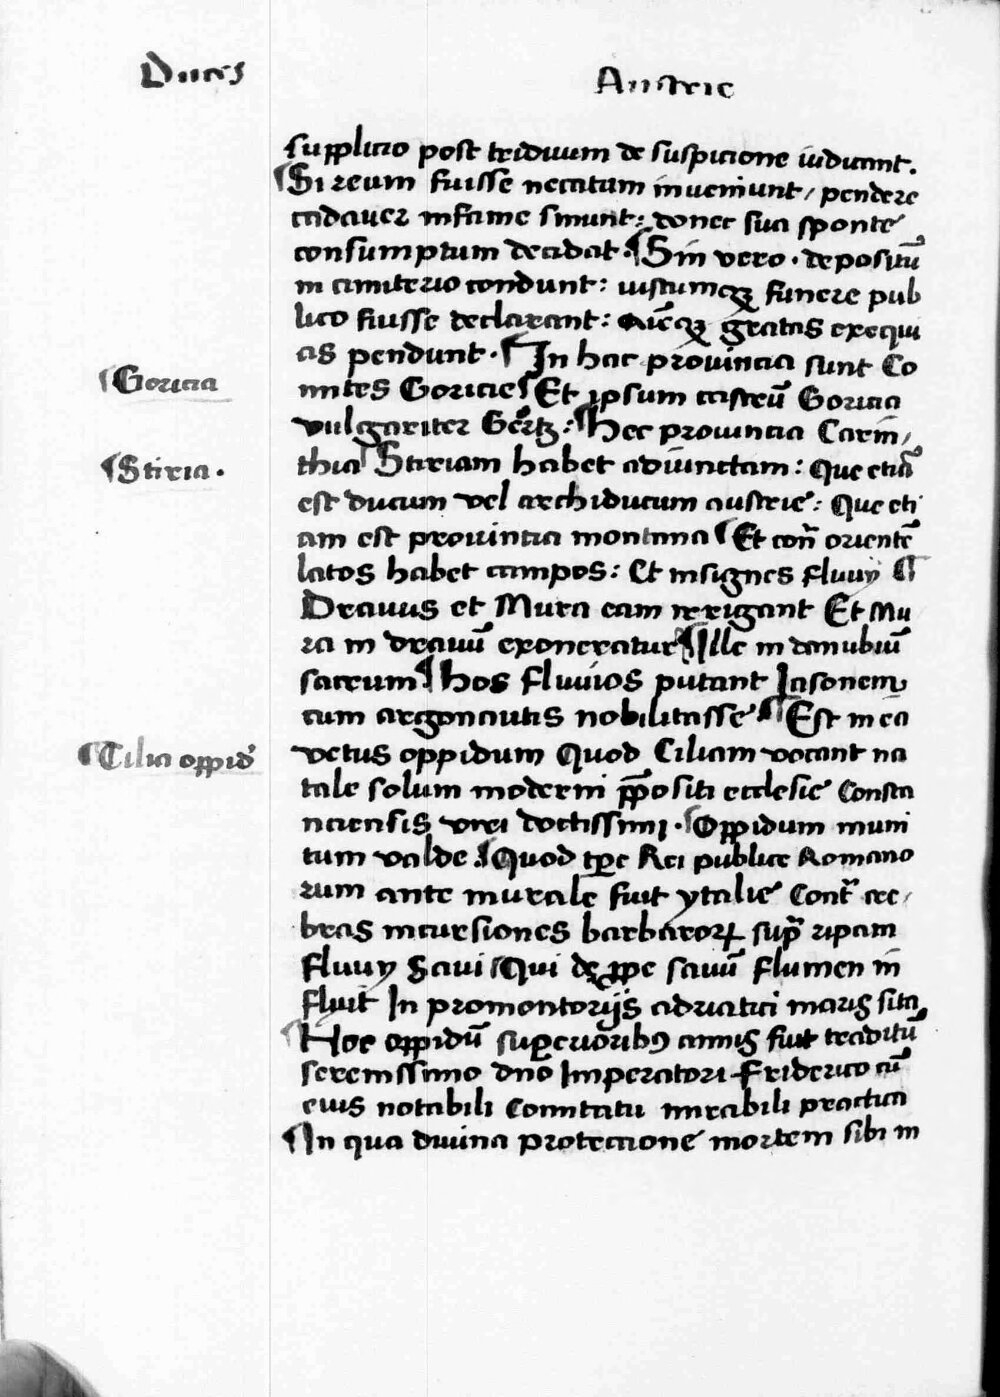 Duces
Austrie
supplicio post triduum de suspicione iudicant.
¶Si reum fuisse necatum inveniunt / pendere
cadaver infame sinunt: donec sua sponte
consumptum decidat. ¶Sin vero . depositū
in cimiterio condunt: iustumqꝫ funere pub
lico fuisse declarant: gratas exequi
as pendunt. ¶In hac provincia sunt Co
mites Goricie ¶Et ipsum castrū Goricia
vulgariter Gertz: ¶Hec provincia Carin/
thia Stiriam habet adiunctam: Que etiā
est ducum vel archiducum austrie: Que eti
am est provintia montana ¶Et con̄ orientē
latos habet campos: Et insignes fluvy ¶
Dravus et Mura eam irrigant Et Mu
ra in dravū exoneratur ¶Ille in danubiū
sacrum ¶hos fluvios putant Iasonem
cum argonautis nobilitasse ¶Est in ea
vetus oppidum Quod Ciliam vocant na
tale solum moderni p̄positi ecclesie Consta
nciensis viri doctissimi. ¶Oppidum muni
tum valde ¶Quod tꝑe Rei publice Romano
rum ante murale fuit ytalie Cont̄ cre/
bras incursiones barbaroꝝ sup̄ ripam
fluvy Savi ¶Qui de ꝓpe savū flumen in
fluit In promontorijs adriatici maris sita
¶Hoc oppidū suꝑioribꝰ annis fuit traditū
serenissimo dn̄o Imperatori Friderico cū
eius notabili Comitatu mirabili practica
¶In qua divina protectione mortem sibi in
¶Goricia
¶Stiria.
¶Cilia oppid̄